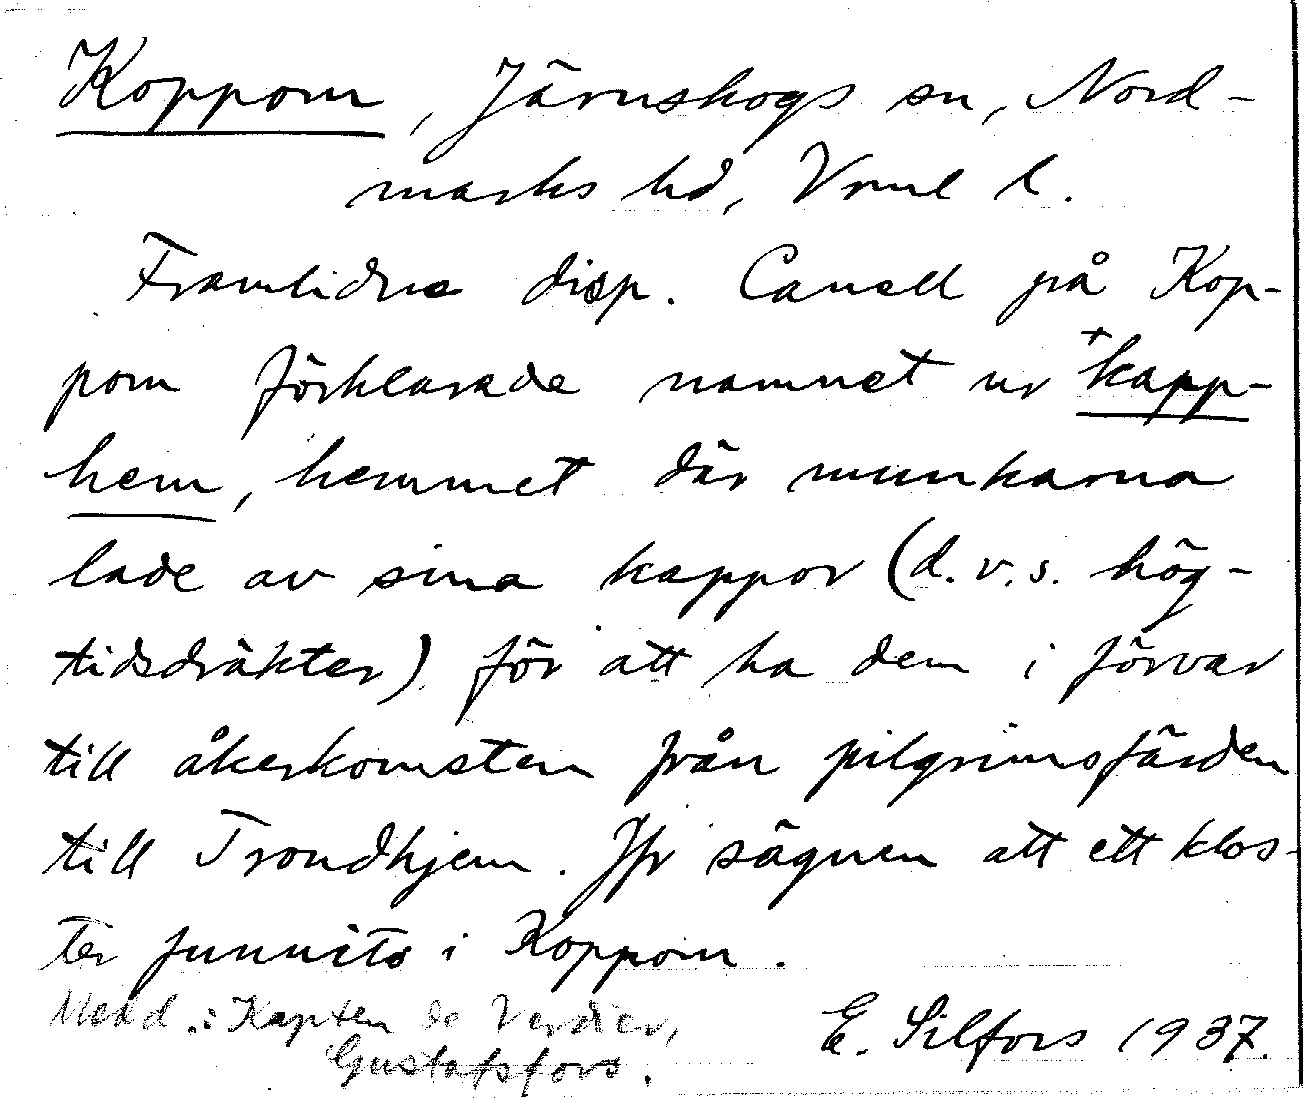 Koppom, Järnskogs sn, Nord-
marks hd, Vrml l.
Framlidne disp. Canell på Kop-
pom förklarade namnet ur *kapp-
hem, hemmet där munkarna
lade av sina kappor (d.v.s. hög-
tidsdräkter) för att ha dem i förvar
till åkerkomsten från pilgrimsfärden
till Trondhjem. Jfr sägnen att ett klos-
ter funnits i Koppom.
Medd.: Kapten de Verdier,
Gustafsfors.
E. Silfors 1937.